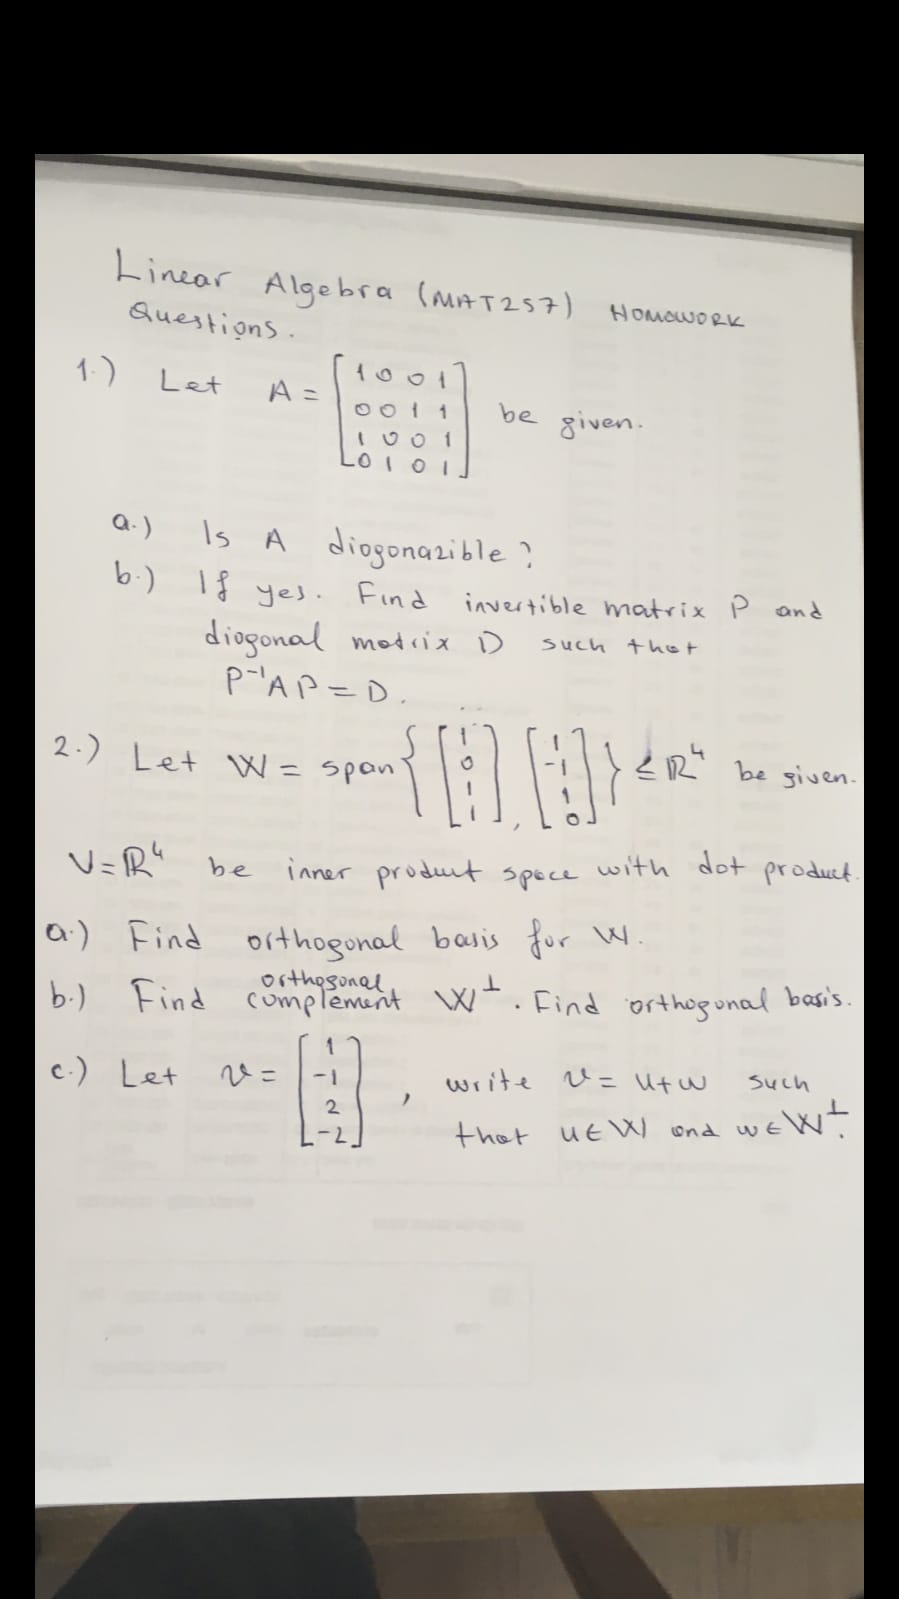 Linear Algebra (MAT257) HOMOWORK
Questions.
1.) Let A = [1 0 0 1
0 0 1 1
1 0 0 1
0 1 0 1] be given.
a.) Is A diogonazible?
b.) If yes. Find invertible matrix P and
diogonal matrix D such that
P⁻¹AP = D.
2.) Let W = span{[1 0 1 1], [1 -1 1 0]} ≤ ℝ⁴ be given.
V=ℝ⁴ be inner product space with dot product.
a.) Find orthogonal basis for W.
b.) Find orthogonal complement W⊥. Find orthogonal basis.
c.) Let v = [1 -1 2 -2], write v = u+w such
that u∈W and w∈W⊥.